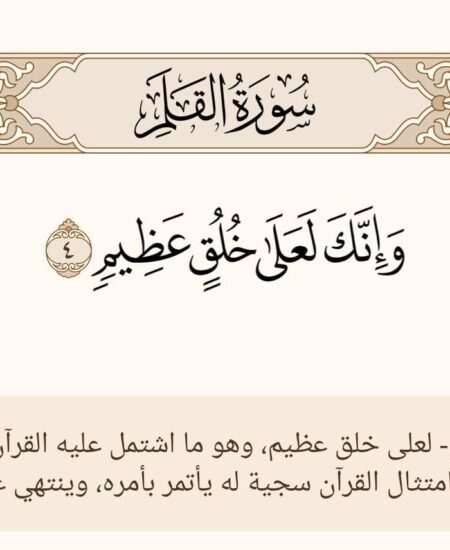 سُورَةُ القَلَمِ
وَإِنَّكَ لَعَلَىٰ خُلُقٍ عَظِيمٍ ٤
- لعلى خلق عظيم، وهو ما اشتمل عليه
امتثال القرآن سجية له يأتمر بأمره، وينتهي